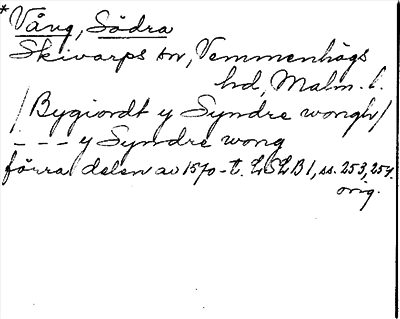 * Vång, Södra
Skivarps sn, Vemmenhögs
hd, Malm. l.
/Bygiordt y Syndre wongh/
- - - y Syndre wong
förra delen av 1570-t. LSLB 1, ss. 253, 257.
orig.